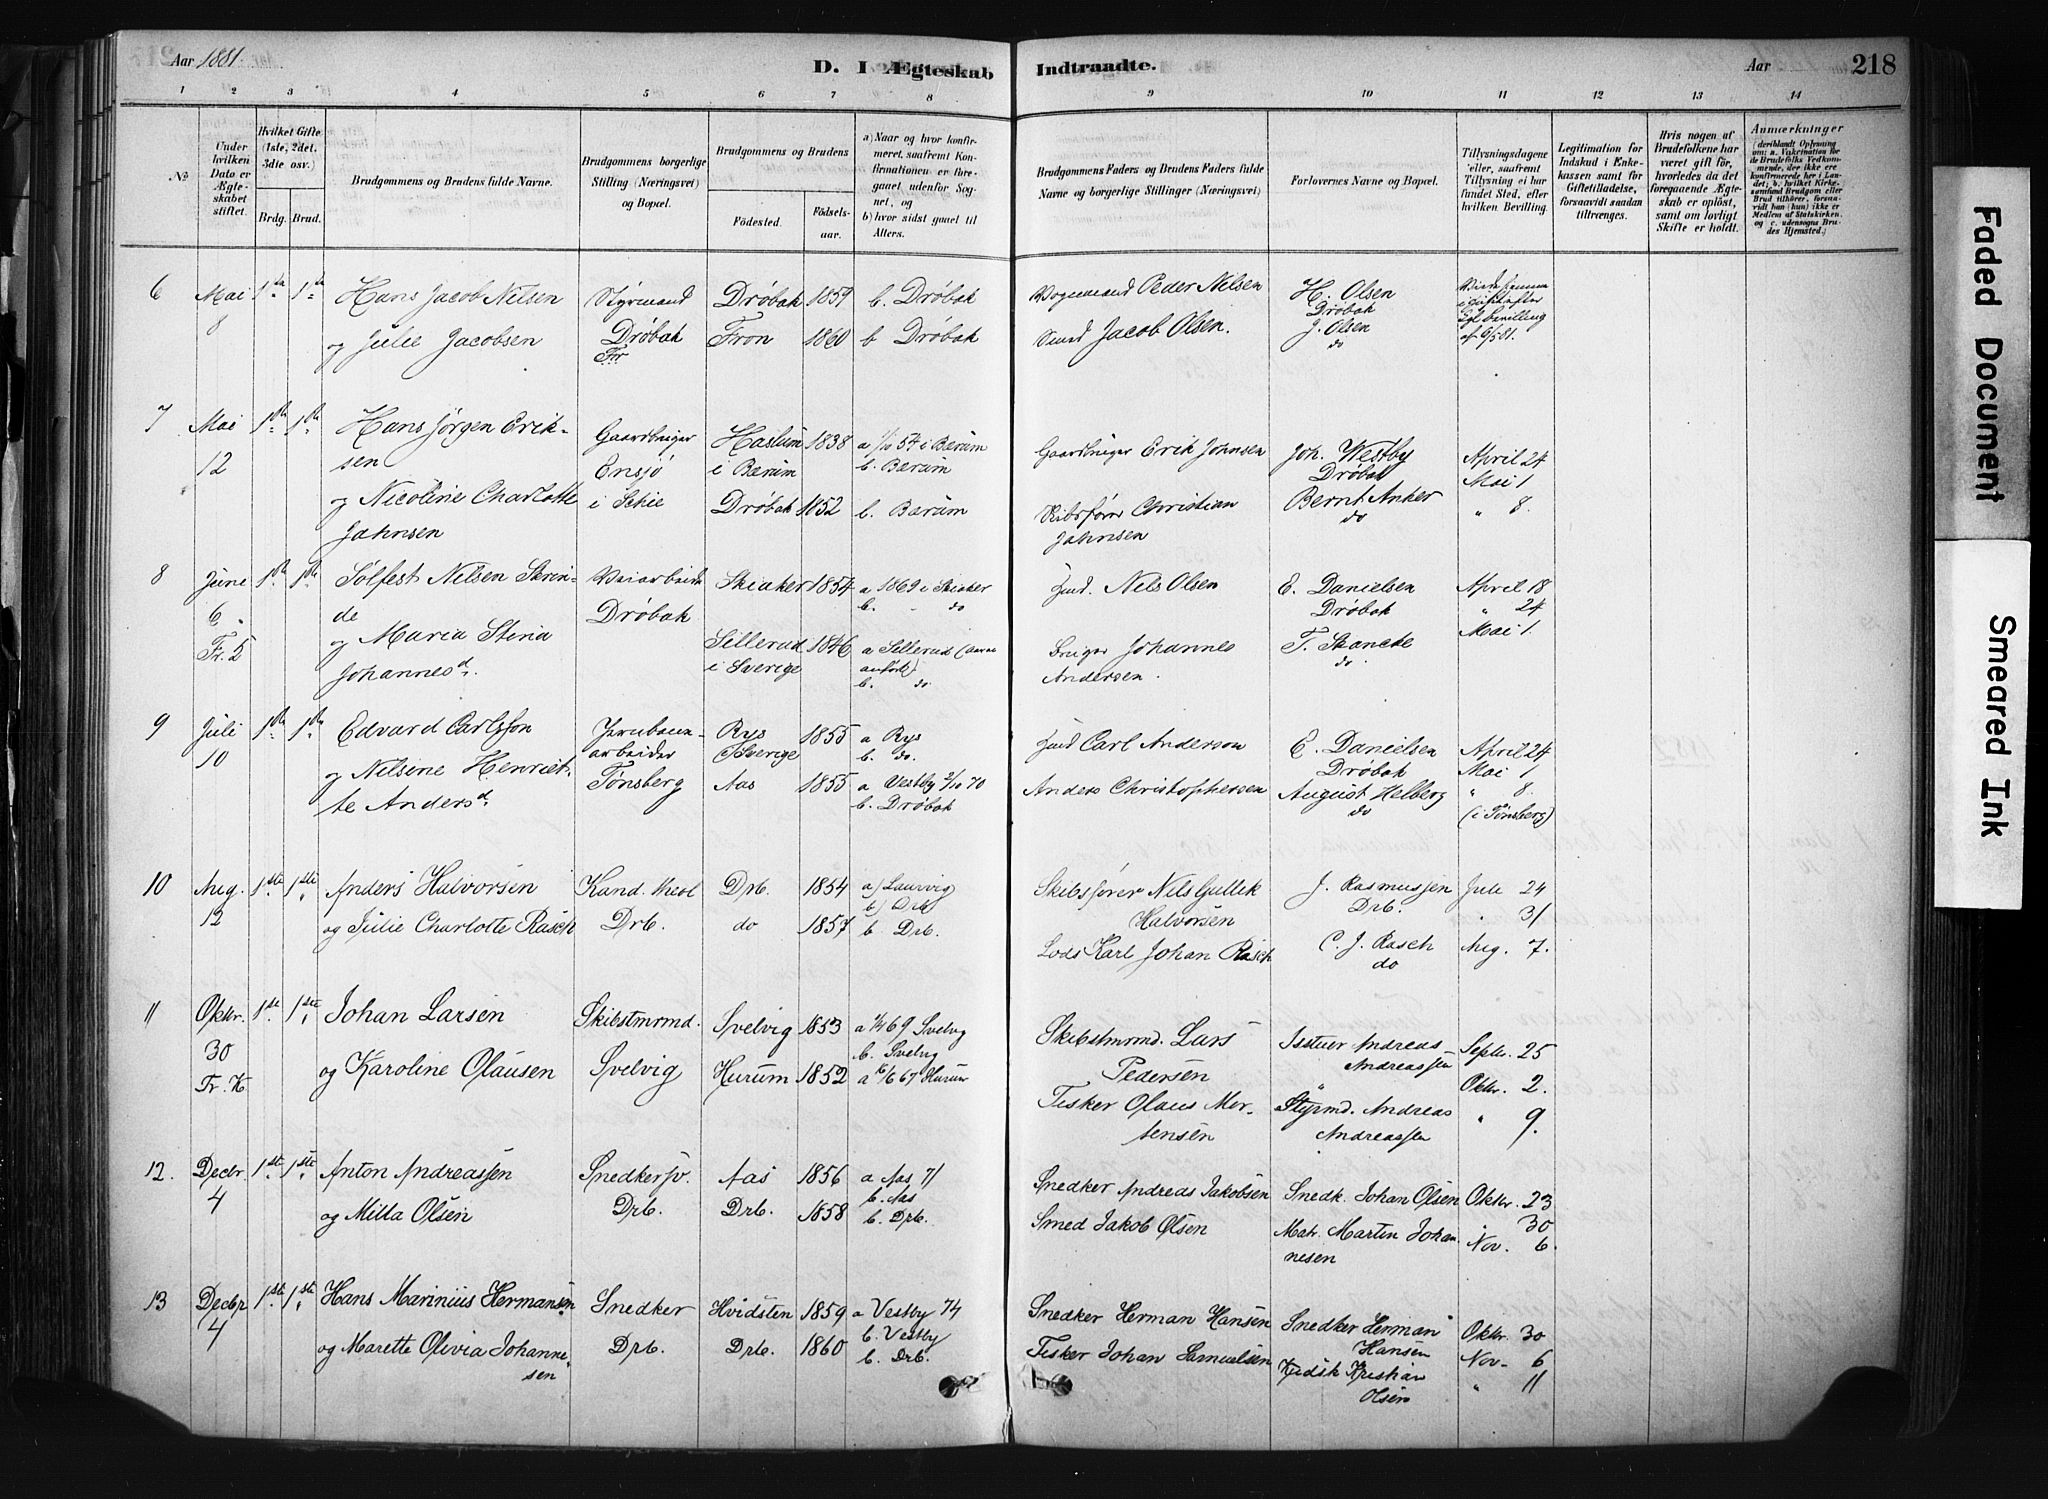 Aar 1881.
D. I Ægteskab Indtraadte.
Aar
218
1 2 3 4 5 6 7 8 9 10 11 12 13 14
No.
Under hvilken Dato er Ægteskabet stiftet.
Hvilket Gifte (1ste, 2det, 3die osv.)
Brdg. Brud.
Brudgommens og Brudens fulde Navne.
Brudgommens borgerlige Stilling (Næringsvei) og Bopæl.
Brudgommens og Brudens
Födested.
Födselsaar.
a) Naar og hvor konfirmeret, saafremt Konfirmationen er foregaaet udenfor Sognet, og
b) hvor sidst gaaet til Alters.
Brudgommens Faders og Brudens Faders fulde Navne og borgerlige Stillinger (Næringsvei)
Forlovernes Navne og Bopæl.
Tillysningsdagene eller, saafremt Tillysning ei har fundet Sted, efter hvilken Bevilling.
Legitimation for Indskud i Enkekassen samt for Giftetilladelse, forsaavidt saadan tiltrænges.
Hvis nogen af Brudefolkene har været gift för, hvorledes da det foregaaende Ægteskab er oplöst, samt om lovligt Skifte er holdt.
Anmærkninger
(deriblandt Oplysning om: a. Vakcination for de Brudefolks Vedkommende, der ikke ere konfirmerede her i Landet; b. hvilket Kirkesamfund Brudgom eller Brud tilhörer, forsaavidt han (hun) ikke er Medlem af Statskirken, og c. udensogns Brudes Hjemsted.)
6 Mai 1ste 1ste Hans Jacob Nilsen Styrmand Drøbak 1859 b. Drøbak Peder Nilsen H. Olsen
8 Drøbak Drøbak
og Julie Jacobsen Fr Fron 1860 b Drøbak Smed Jacob Olsen. J. Olsen bevilling
do af 6/5 81.
7 Mai 1ste 1ste Hans Jørgen Erik- Gaardbruger Haslum 1838 a 1/10 54 i Bærum Gaardbruger Erik Johnsen Joh. Westby April 24
12 sen Ensjö i Bærum b. Bærum Drøbak Mai 1
og Nicoline Charlotte i Schie Drøbak 1852 b. Bærum Skibsfører Christian Bernt Anker " 8.
Jahnsen Jahnsen do
8 June 1ste 1ste Solfest Nilsen Skrin- Veiarbeider Skiaker 1854 a 1869 i Skiaker Nils Olsen E. Danielsen April 18
6. de Drøbak b. do Drøbak " 24
Fr. 5 og Maria Stina Sillerud 1846 a Sillerud Johannes T. Skancke Mai 1.
Johannesd. i Sverige b. do Andersen. do
9 Juli 1ste 1ste Edvard Carlsson Jernbane- Rys 1855 a Rys Carl Anderson E. Danielsen April 24
10 arbeider Sverige b. do. Drøbak Mai 1
og Nilsine Henriet- Tønsberg Aas 1855 a Vestby 2/10 70 Anders Christophersen August Helberg " 8.
te Andersd. b. Drøbak do (i Tønsberg)
10 Aug. 1ste 1ste Anders Halvorsen Kand. theol Drb. 1854 a) Laurvig Skibsfører Nils Gullik J. Rasmussen Jule 24
12 b) Drb. Halvorsen Drb. " 31
og Julie Charlotte Rasch Drb. do 1857 b. Drb. Lods Karl Johan Rasch C. J. Rasch Aug. 7.
do
11 Oktbr. 1ste 1ste Johan Larsen Skibstmrmd. Svelvig 1853 a 69 Svelvig Skibstmrmd. Lars Andreas Septbr. 25
30 b. Svelvig Pedersen Andreassen
Fr. K og Karoline Olausen Svelvig Hurum 1852 a 67 Hurum Oktbr. 2.
Fisker Olaus Mor- Styrmd. Andreas " 9.
tensen Andreassen
12. Decbr 1ste 1ste Anton Andreassen Snedkersv. Aas 1856 a Aas 71 Snedker Andreas Jakobsen Snedk. Johan Olsen Oktbr. 23
4 b. Aas
og Milla Olsen Drb. Drb. 1858 b. Drb. Smed Jakob Olsen Matr. Martin Johan- " 30
nesen Nov. 6.
13 Decbr 1ste 1ste Hans Marinius Hermansen Snedker Hvidsten 1859 a Vestby 74 Snedker Herman Hansen Snedker Herman Oktbr. 30
4 b. Vestby Hansen
og Marette Olivia Johanne- Drb. Drb. 1860 b. Drb. Fisker Johan Samuelsen Kristian Nov- 6
sen Olsen " 11
Faded Document
Smeared Ink